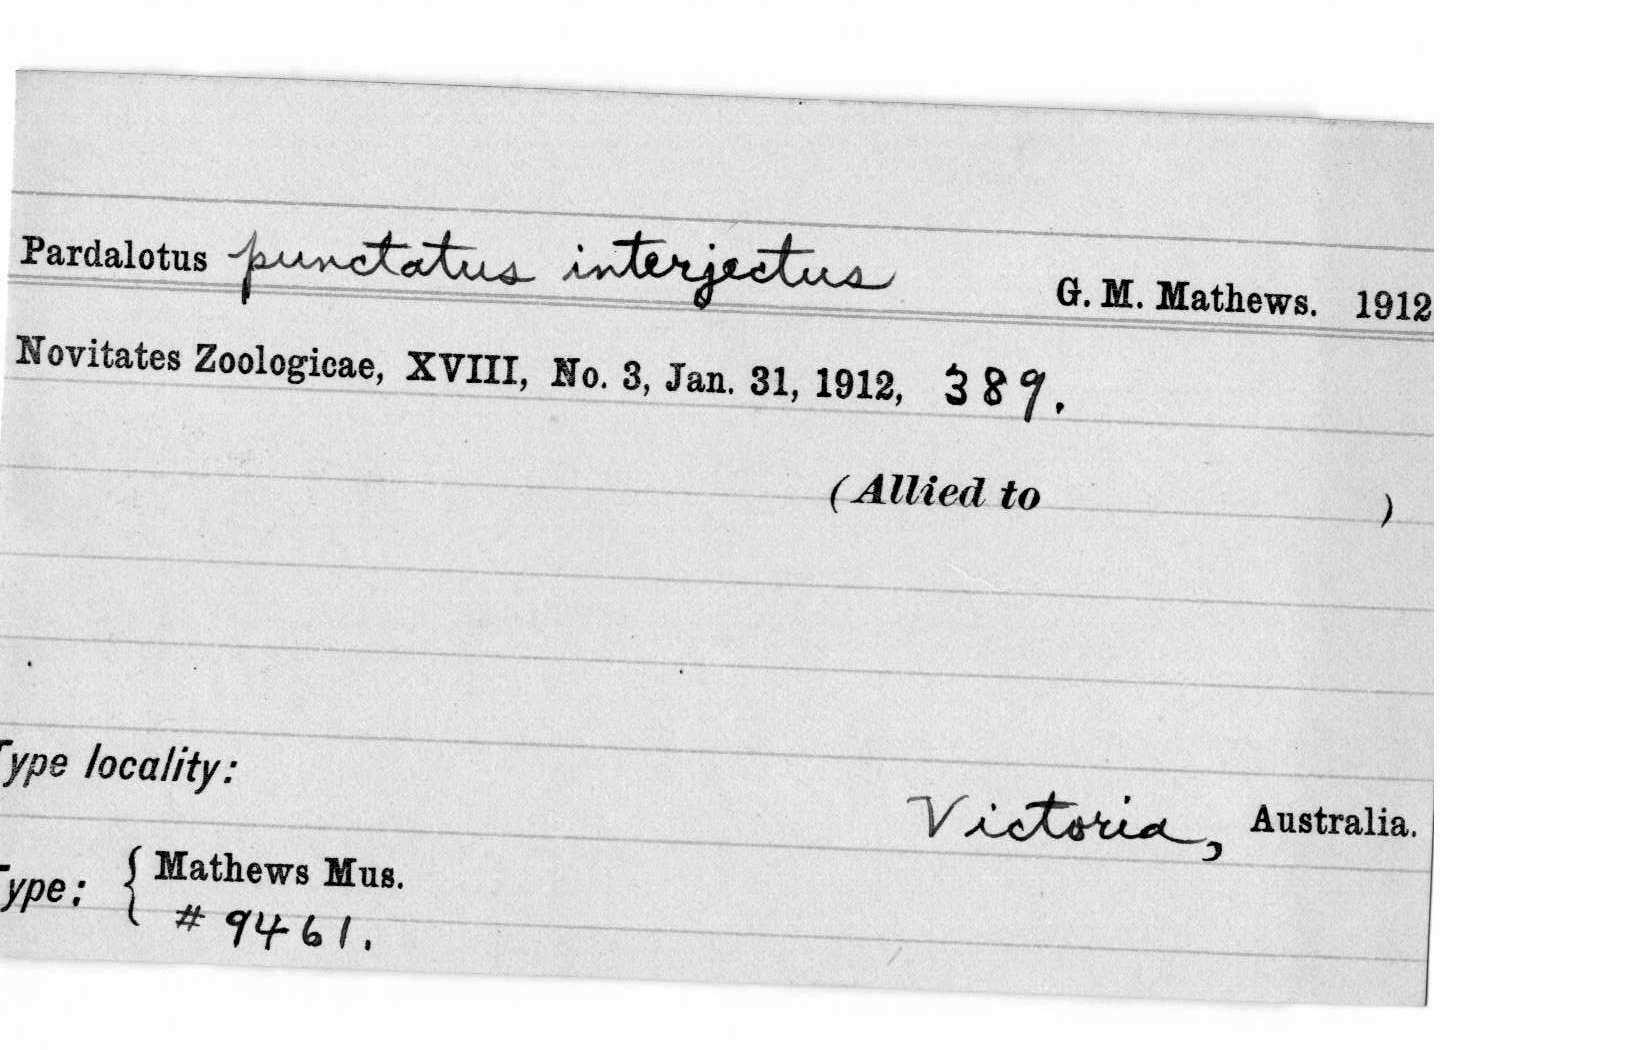 Pardalotus punctatus interjectus G. M. Mathews. 1912
Novitates Zoologicae, XVIII, No. 3, Jan. 31, 1912, 389.
(Allied to )
Type locality:
Victoria, Australia.
Type: { Mathews Mus.
# 9461.